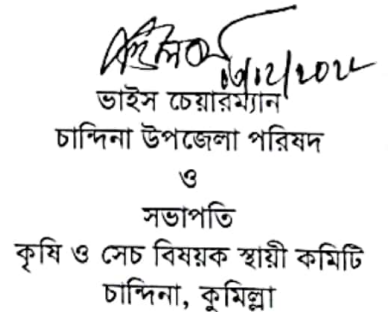 ভাইস চেয়ারম্যান
চান্দিনা উপজেলা পরিষদ
ও
সভাপতি
কৃষি ও সেচ বিষয়ক স্থায়ী কমিটি
চান্দিনা, কুমিল্লা